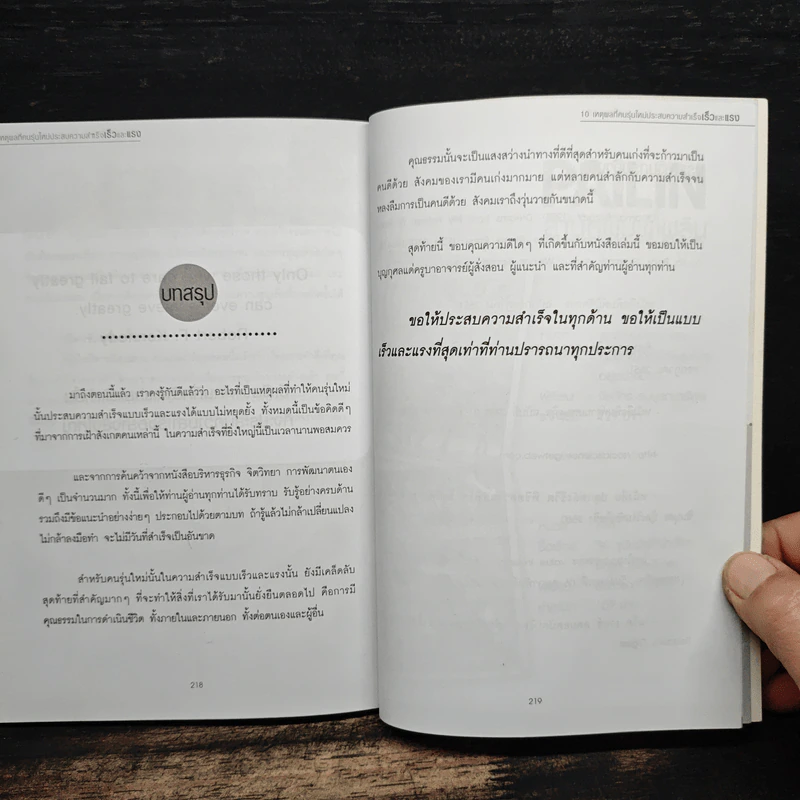 เหตุผลที่คนรุ่นใหม่ประสบความสำเร็จเร็วและแรง
บทสรุป
มาถึงตอนนี้แล้ว เราคงรู้กันดีแล้วว่า อะไรที่เป็นเหตุผลที่ทำให้คนรุ่นใหม่
นั้นประสบความสำเร็จแบบเร็วและแรงได้แบบไม่หยุดยั้ง ทั้งหมดนี้เป็นข้อคิดดีๆ
ที่มาจากการเฝ้าสังเกตคนเหล่านี้ ในความสำเร็จที่ยิ่งใหญ่นี้เป็นเวลานานพอสมควร
และจากการค้นคว้าจากหนังสือบริหารธุรกิจ จิตวิทยา การพัฒนาตนเอง
ดีๆ เป็นจำนวนมาก ทั้งนี้เพื่อให้ท่านผู้อ่านทุกท่านได้รับทราบ รับรู้อย่างครบด้าน
รวมถึงมีข้อแนะนำอย่างง่ายๆ ประกอบไปด้วยตามบท ถ้ารู้แล้วไม่กล้าเปลี่ยนแปลง
ไม่กล้าลงมือทำ จะไม่มีวันที่สำเร็จเป็นอันขาด
สำหรับคนรุ่นใหม่นั้นในความสำเร็จแบบเร็วและแรงนั้น ยังมีเคล็ดลับ
สุดท้ายที่สำคัญมากๆ ที่จะทำให้สิ่งที่เราได้รับมานั้นยั่งยืนตลอดไป คือการมี
คุณธรรมในการดำเนินชีวิต ทั้งภายในและภายนอก ทั้งต่อตนเองและผู้อื่น
218
10 เหตุผลที่คนรุ่นใหม่ประสบความสำเร็จเร็วและแรง
คุณธรรมนั้นจะเป็นแสงสว่างนำทางที่ดีที่สุดสำหรับคนเก่งที่จะก้าวมาเป็น
คนดีด้วย สังคมของเรามีคนเก่งมากมาย แต่หลายคนสำลักกับความสำเร็จจน
หลงลืมการเป็นคนดีด้วย สังคมเราถึงวุ่นวายกันขนาดนี้
สุดท้ายนี้ ขอบคุณความดีใดๆ ที่เกิดขึ้นกับหนังสือเล่มนี้ ขอมอบให้เป็น
บุญกุศลแด่ครูบาอาจารย์ผู้สั่งสอน ผู้แนะนำ และที่สำคัญท่านผู้อ่านทุกท่าน
ขอให้ประสบความสำเร็จในทุกด้าน ขอให้เป็นแบบ
เร็วและแรงที่สุดเท่าที่ท่านปรารถนาทุกประการ
219